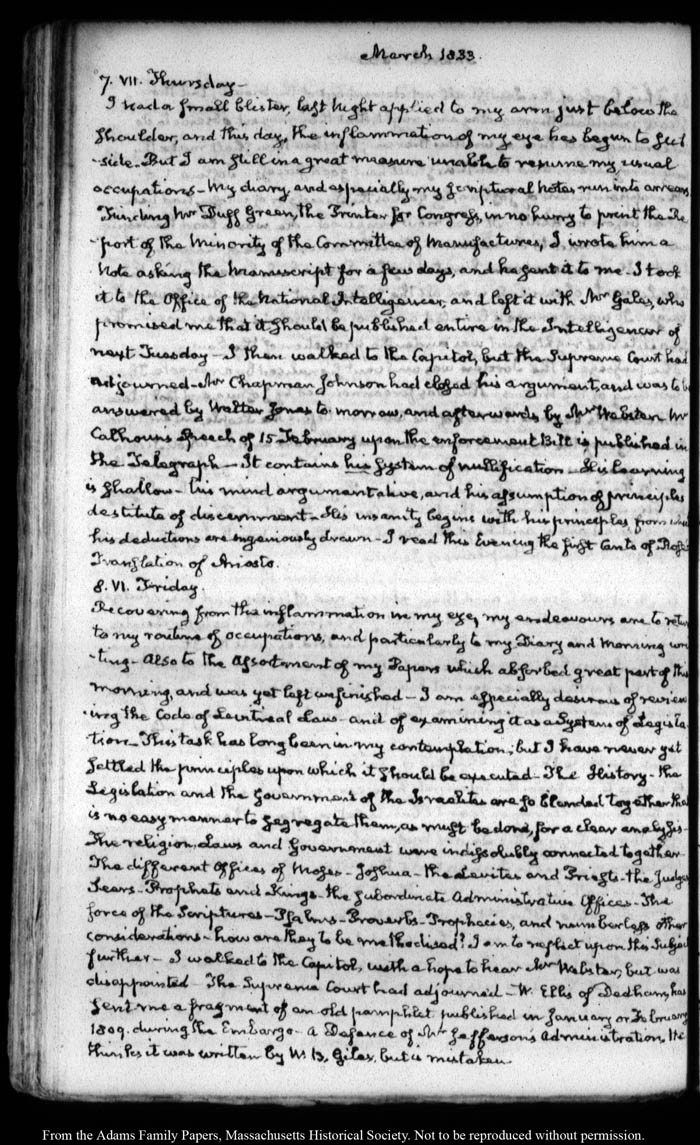 March 1833.
7. VII. Thursday-
I had a small blister, last Night applied to my arm just below the
shoulder, and this day, the inflammation of my eye has begun to sub
-side. But I am still in a great measure unable to resume my usual
occupations- My diary, and especially my scriptural notes run into arrears
Finding Mr Duff Green, the Printer for Congress, in no hurry to print the Re
-port of the Minority of the Committee of Manufactures, I wrote him a
Note asking the Manuscript for a few days, and he sent it to me. I took
it to the Office of the National Intelligencer, and left it with Mr Gales, who
promised me that it should be published entire in the Intelligencer of
next Tuesday- I then walked to the Capitol, but the Supreme Court had
adjourned- Mr Chapman Johnson had closed his argument, and was to be
answered by Walter Jones to-morrow, and afterwards by Mr Webster. Mr
Calhoun's Speech of 15 February upon the enforcement Bill is published in
the Telegraph- It contains his system of nullification- His learning
is shallow- his mind argumentative, and his assumption of principles
destitute of discernment- His insanity begins with his principles from
his deductions are ingeniously drawn- I read this Evening the first Canto of Rose's
Translation of Ariosto.
8. VI. Friday.
Recovering from the inflammation in my eye, my endeavours are to return
to my routine of occupations, and particularly to my Diary and Morning wri
-ting- Also to the Assortment of my Papers which absorbed great part of this
morning, and was yet left unfinished- I am especially desirous of review
-ing the Code of Levitical Laws- and of examining it as a System of Legisla-
tion- This task has long been in my contemplation; but I have never yet
settled the principles upon which it should be executed- The History- the
Legislation and the Government of the Israelites are so blended together that
is no easy manner to segregate them, as must be done, for a clear analysis-
The religion, Laws and Government were indissolubly connected together-
The different Offices of Moses- Joshua- the Levites and Priests- the Judges
Seers- Prophets and Kings- the subordinate Administrative Offices- The
force of the Scriptures- Psalms- Proverbs- Prophecies, and numberless other
considerations- how are they to be methodised? I am to reflect upon this subject
further- I walked to the Capitol, with a hope to hear Mr Webster, but was
disappointed- The Supreme Court had adjourned- W. Ellis of Dedham, has
sent me a fragment of an old pamphlet published in January or February
1809. during the Embargo- a Defence of Mr Jefferson's Administration. He
thinks it was written by W. B. Giles, but is mistaken.
From the Adams Family Papers, Massachusetts Historical Society. Not to be reproduced without permission.